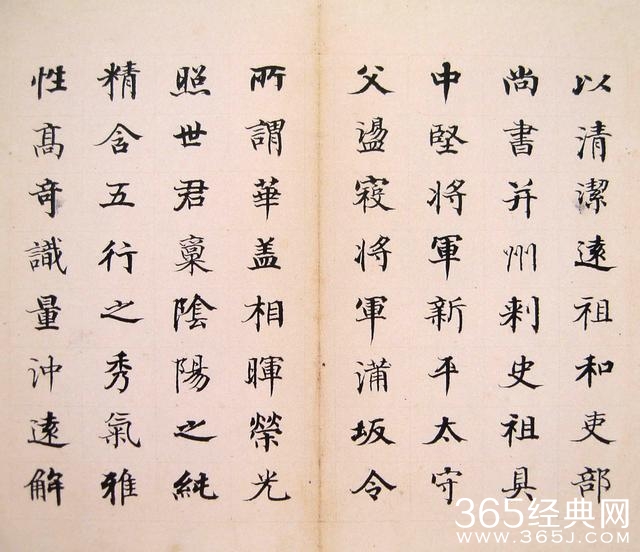 以清潔遠祖和吏部
尚書并州刺史祖具
中堅将軍新平太守
父盪寇将軍蒲坂令
所謂華盖相暉榮光
照世君稟陰陽之純
精含五行之秀氣雅
性髙奇識量沖遠解
365经典网
WWW.365J.COM